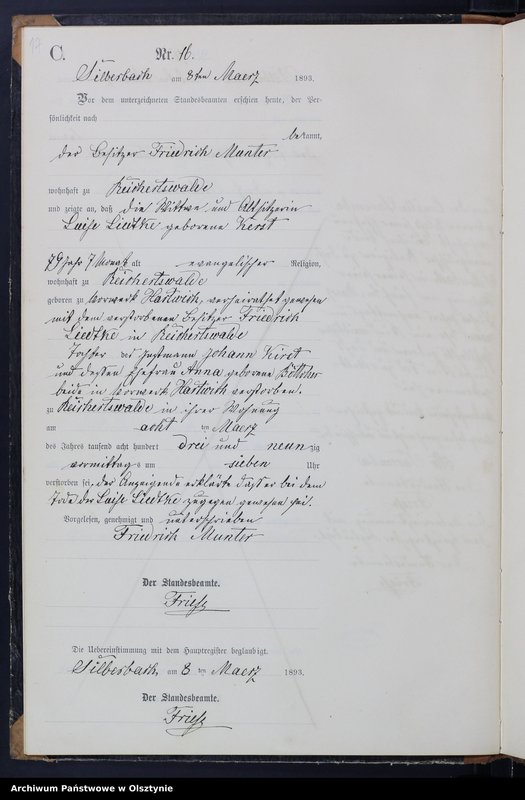 C.
Nr. 16.
Silberbach am 8ten Maerz 1893.
Vor dem unterzeichneten Standesbeamten erschien heute, der Per-
sönlichkeit nach
bekannt,
der Besitzer Friedrich Munter
wohnhaft zu Reichertswalde
und zeigte an, daß die Wittwe und Altsitzerin
Luise Liedtke geborene Kirst
79 Jahr 7 Monat alt evangelischer Religion,
wohnhaft zu Reichertswalde
geboren zu Vorwerk Hartwich, verheirathet gewesen
mit dem verstorbenen Besitzer Friedrich
Liedtke in Reichertswalde
Tochter des Instmann Johann Kirst
und dessen Ehefrau Anna geborene Böttcher
beide in Vorwerk Hartwich verstorben.
zu Reichertswalde in ihrer Wohnung
am acht ten Maerz
des Jahres tausend acht hundert drei und neun zig
vormittags um sieben Uhr
verstorben sei, der Anzeigende erklärte daß er bei dem
Tode der Luise Liedtke zugegen gewesen sei.
Vorgelesen, genehmigt und unterschrieben
Friedrich Munter
Der Standesbeamte.
Die Uebereinstimmung mit dem Hauptregister beglaubigt.
Silberbach, am 8 ten Maerz 1893.
Der Standesbeamte.
Archiwum Państwowe w Olsztynie